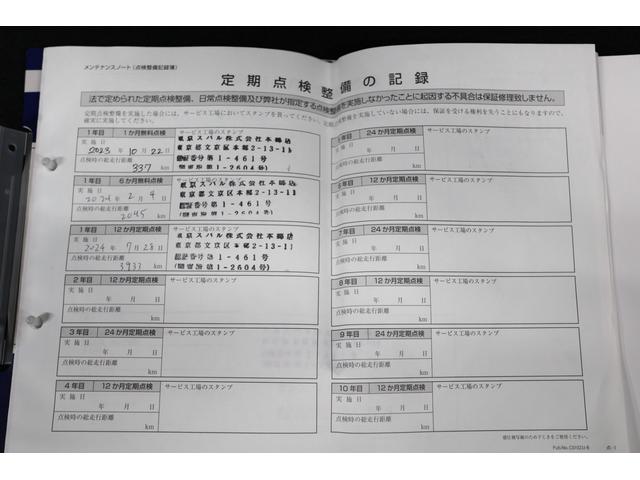 メンテナンスノート（点検整備記録簿）
定期点検整備の記録
法で定められた定期点検整備、日常点検整備及び弊社が指定する点検整備を実施しなかったことに起因する不具合は保証修理致しません。
1年目 1か月無料点検 サービス工場のスタンプ
実施日
2023年10月22日
点検時の総走行距離
337 km
東京スバル株式会社本郷店
東京都文京区本郷2-13-11
認証番号第1-461号
(関東指第1-2604号)
1年目 6か月無料点検
実施日
2024年2月4日
点検時の総走行距離
2045 km
東京スバル株式会社本郷店
東京都文京区本郷2-13-11
認証番号第1-461号
(関東指第1-2604号)
1年目 12か月定期点検
実施日
2024年7月28日
点検時の総走行距離
3933 km
東京スバル株式会社本郷店
東京都文京区本郷2-13-11
認証番号第1-461号
(関東指第1-2604号)
2年目 12か月定期点検 サービス工場のスタンプ
実施日
年 月 日
点検時の総走行距離
km
3年目 24か月定期点検 サービス工場のスタンプ
実施日
年 月 日
点検時の総走行距離
km
4年目 12か月定期点検 サービス工場のスタンプ
実施日
年 月 日
点検時の総走行距離
km
5年目 24か月定期点検 サービス工場のスタンプ
実施日
年 月 日
点検時の総走行距離
km
6年目 12か月定期点検 サービス工場のスタンプ
実施日
年 月 日
点検時の総走行距離
km
7年目 24か月定期点検 サービス工場のスタンプ
実施日
年 月 日
点検時の総走行距離
km
8年目 12か月定期点検 サービス工場のスタンプ
実施日
年 月 日
点検時の総走行距離
km
9年目 24か月定期点検 サービス工場のスタンプ
実施日
年 月 日
点検時の総走行距離
km
10年目 12か月定期点検 サービス工場のスタンプ
実施日
年 月 日
点検時の総走行距離
km